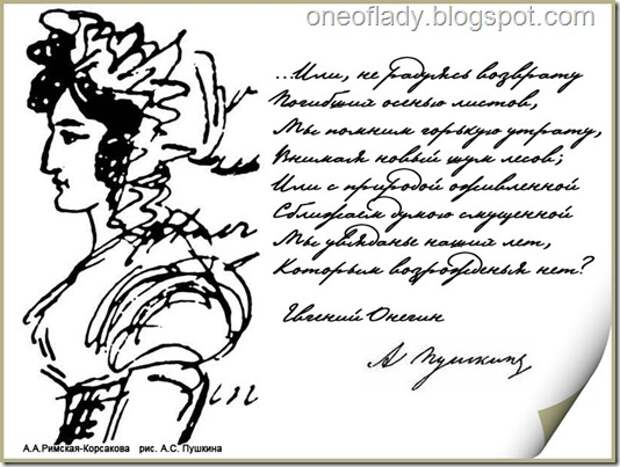 oneoflady.blogspot.com
...Или, не радуясь возврату
Погибших осенью листов,
Мы помним горькую утрату,
Внимая новый шум лесов;
Или с природой оживленной
Сближаем думою смущенной
Мы увяданье наших лет,
Которым возрожденья нет?
Евгений Онегин
А Пушкинъ
А.А.Римская-Корсакова рис. А.С. Пушкина